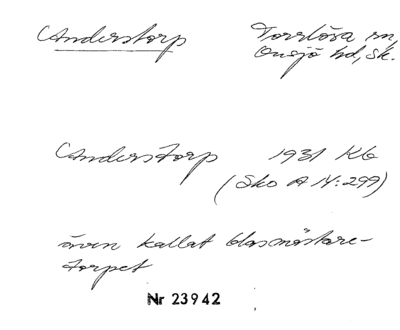 Anderstorp Torrlösa sn,
Onsjö hd, Sk.
Anderstorp 1931 Kb
(Sko A IV:299)
även kallat Glasmästare-
torpet
Nr 23942